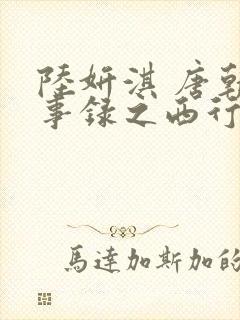 陸妍淇 唐朝
事録之西行
馬達加斯加的